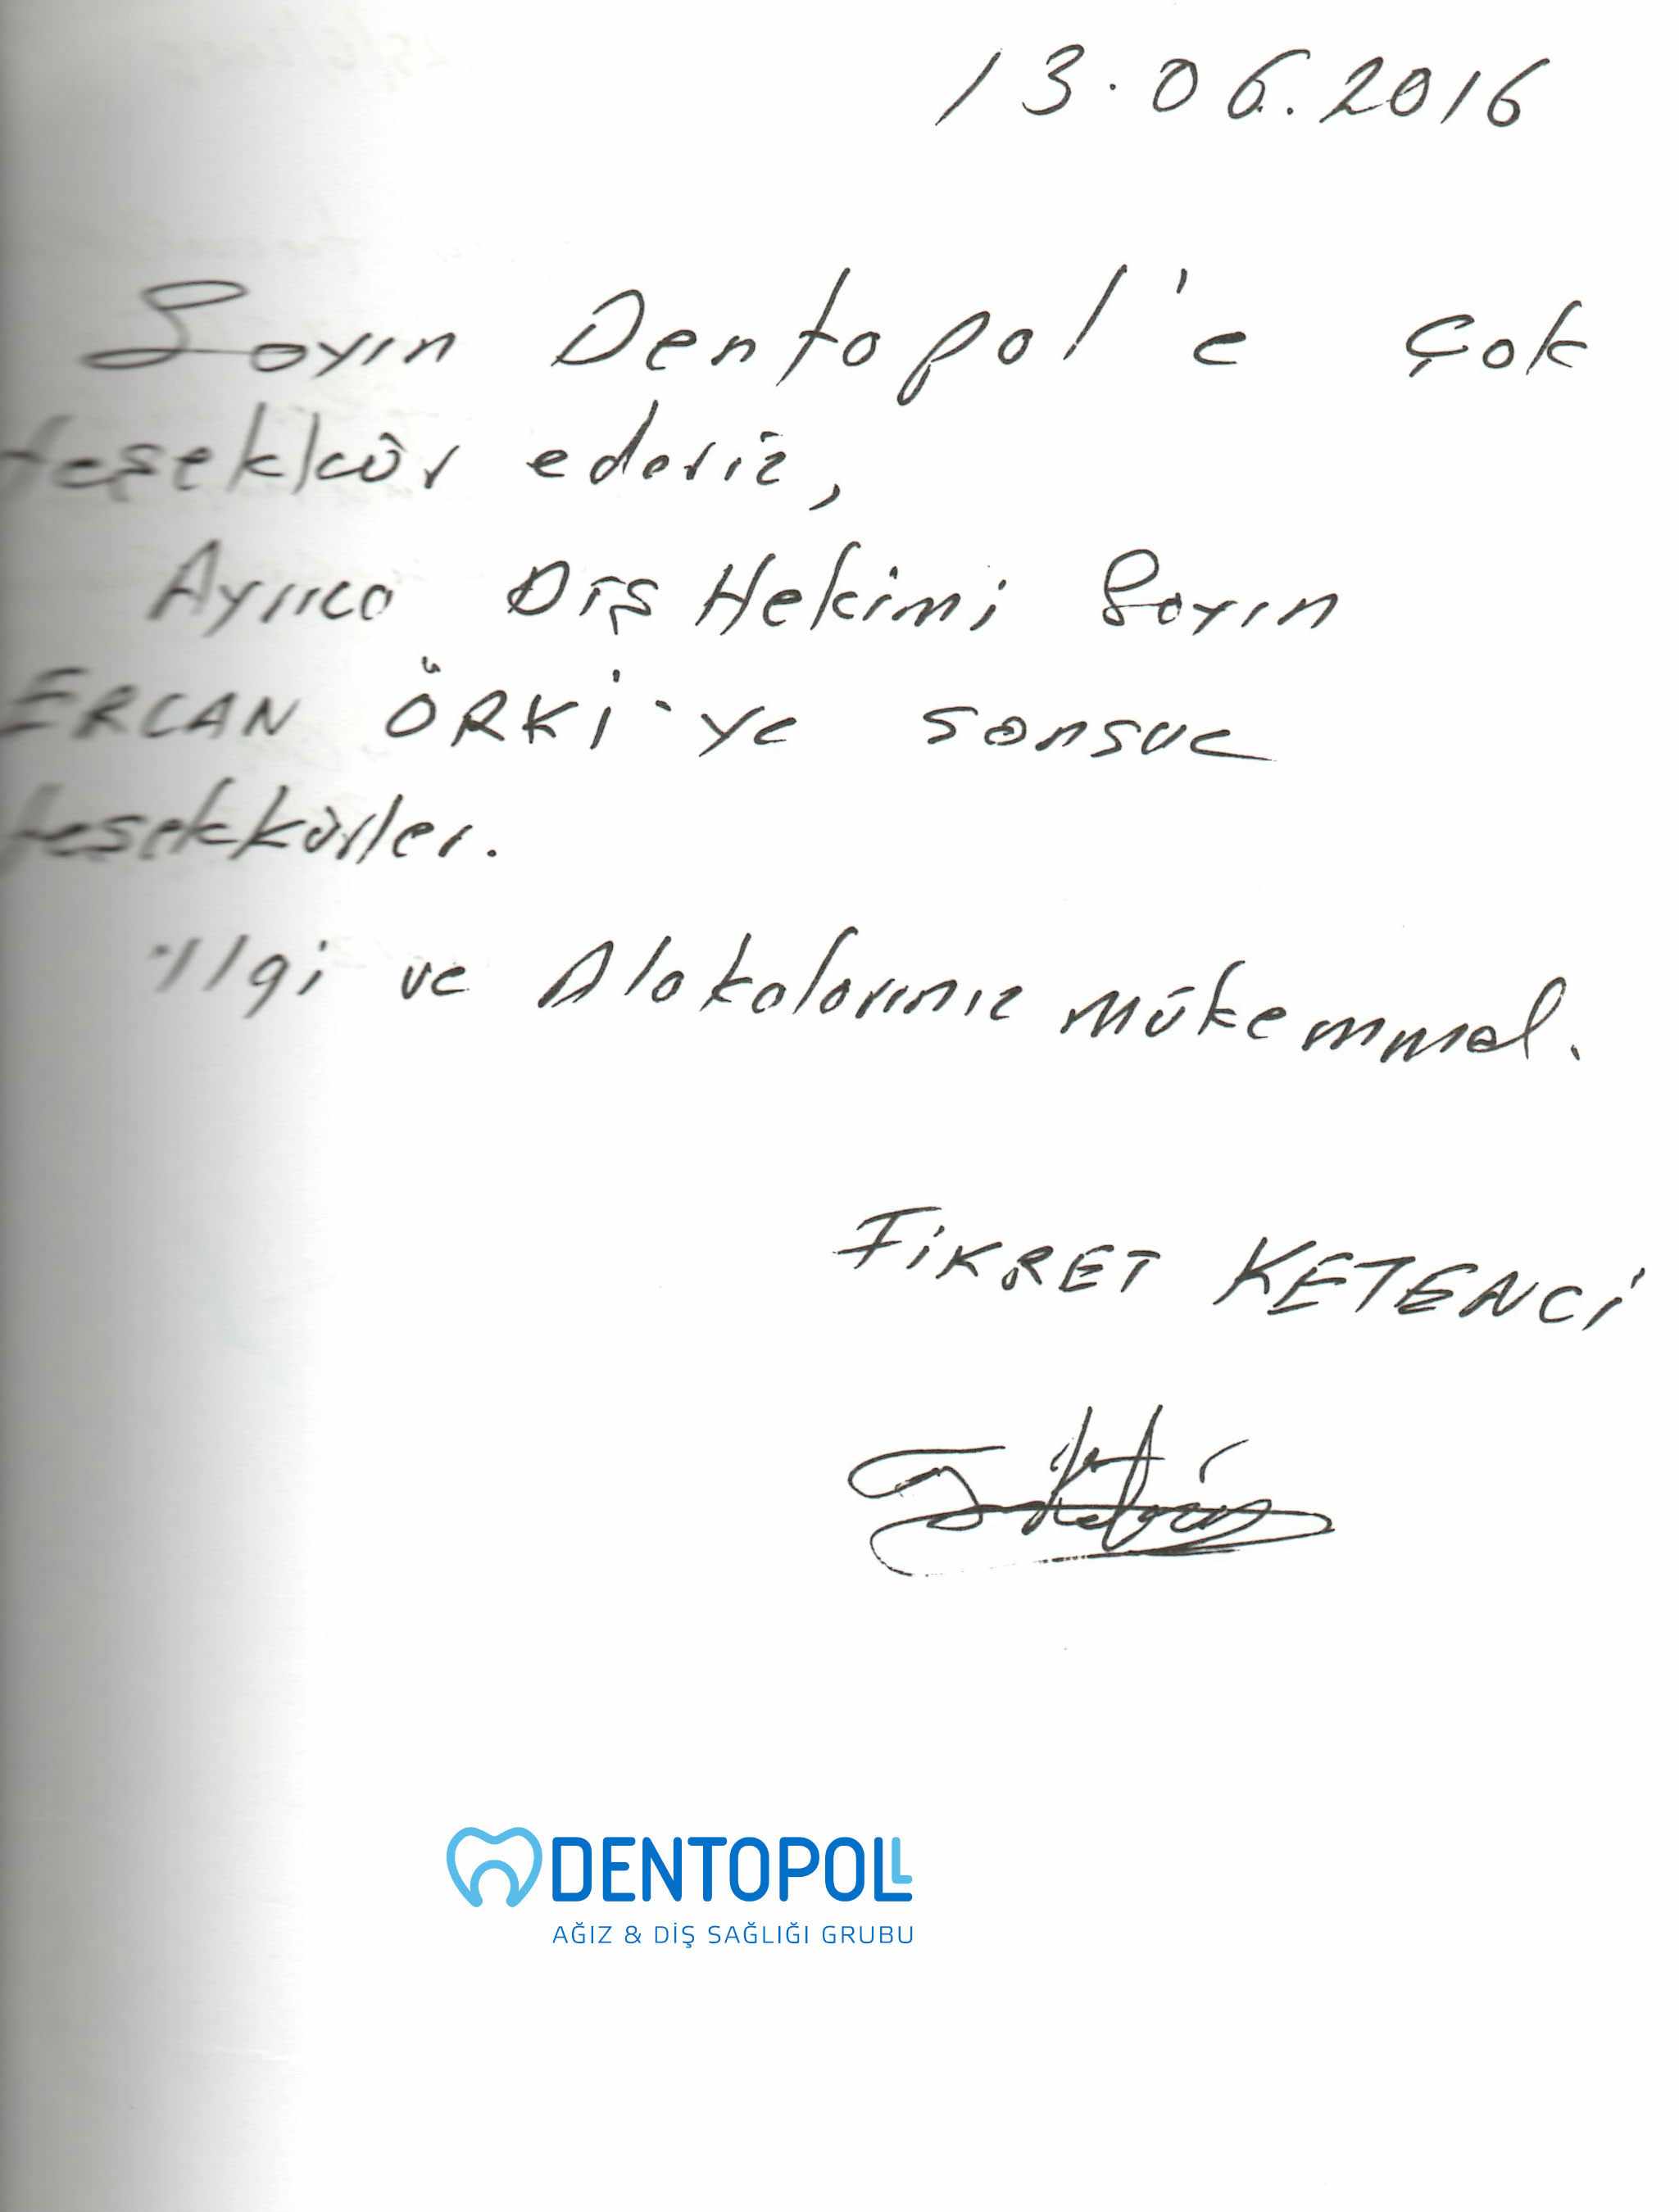 13.06.2016
Sayın Dentopol'e çok
teşekkür ederiz,
Ayrıca Diş Hekimi Sayın
ERCAN ÖRKİ'ye sonsuz
teşekkürler.
İlgi ve Alakalarınız mükemmel.
FİKRET KETENCİ
DENTOPOLL
AĞIZ & DİŞ SAĞLIĞI GRUBU